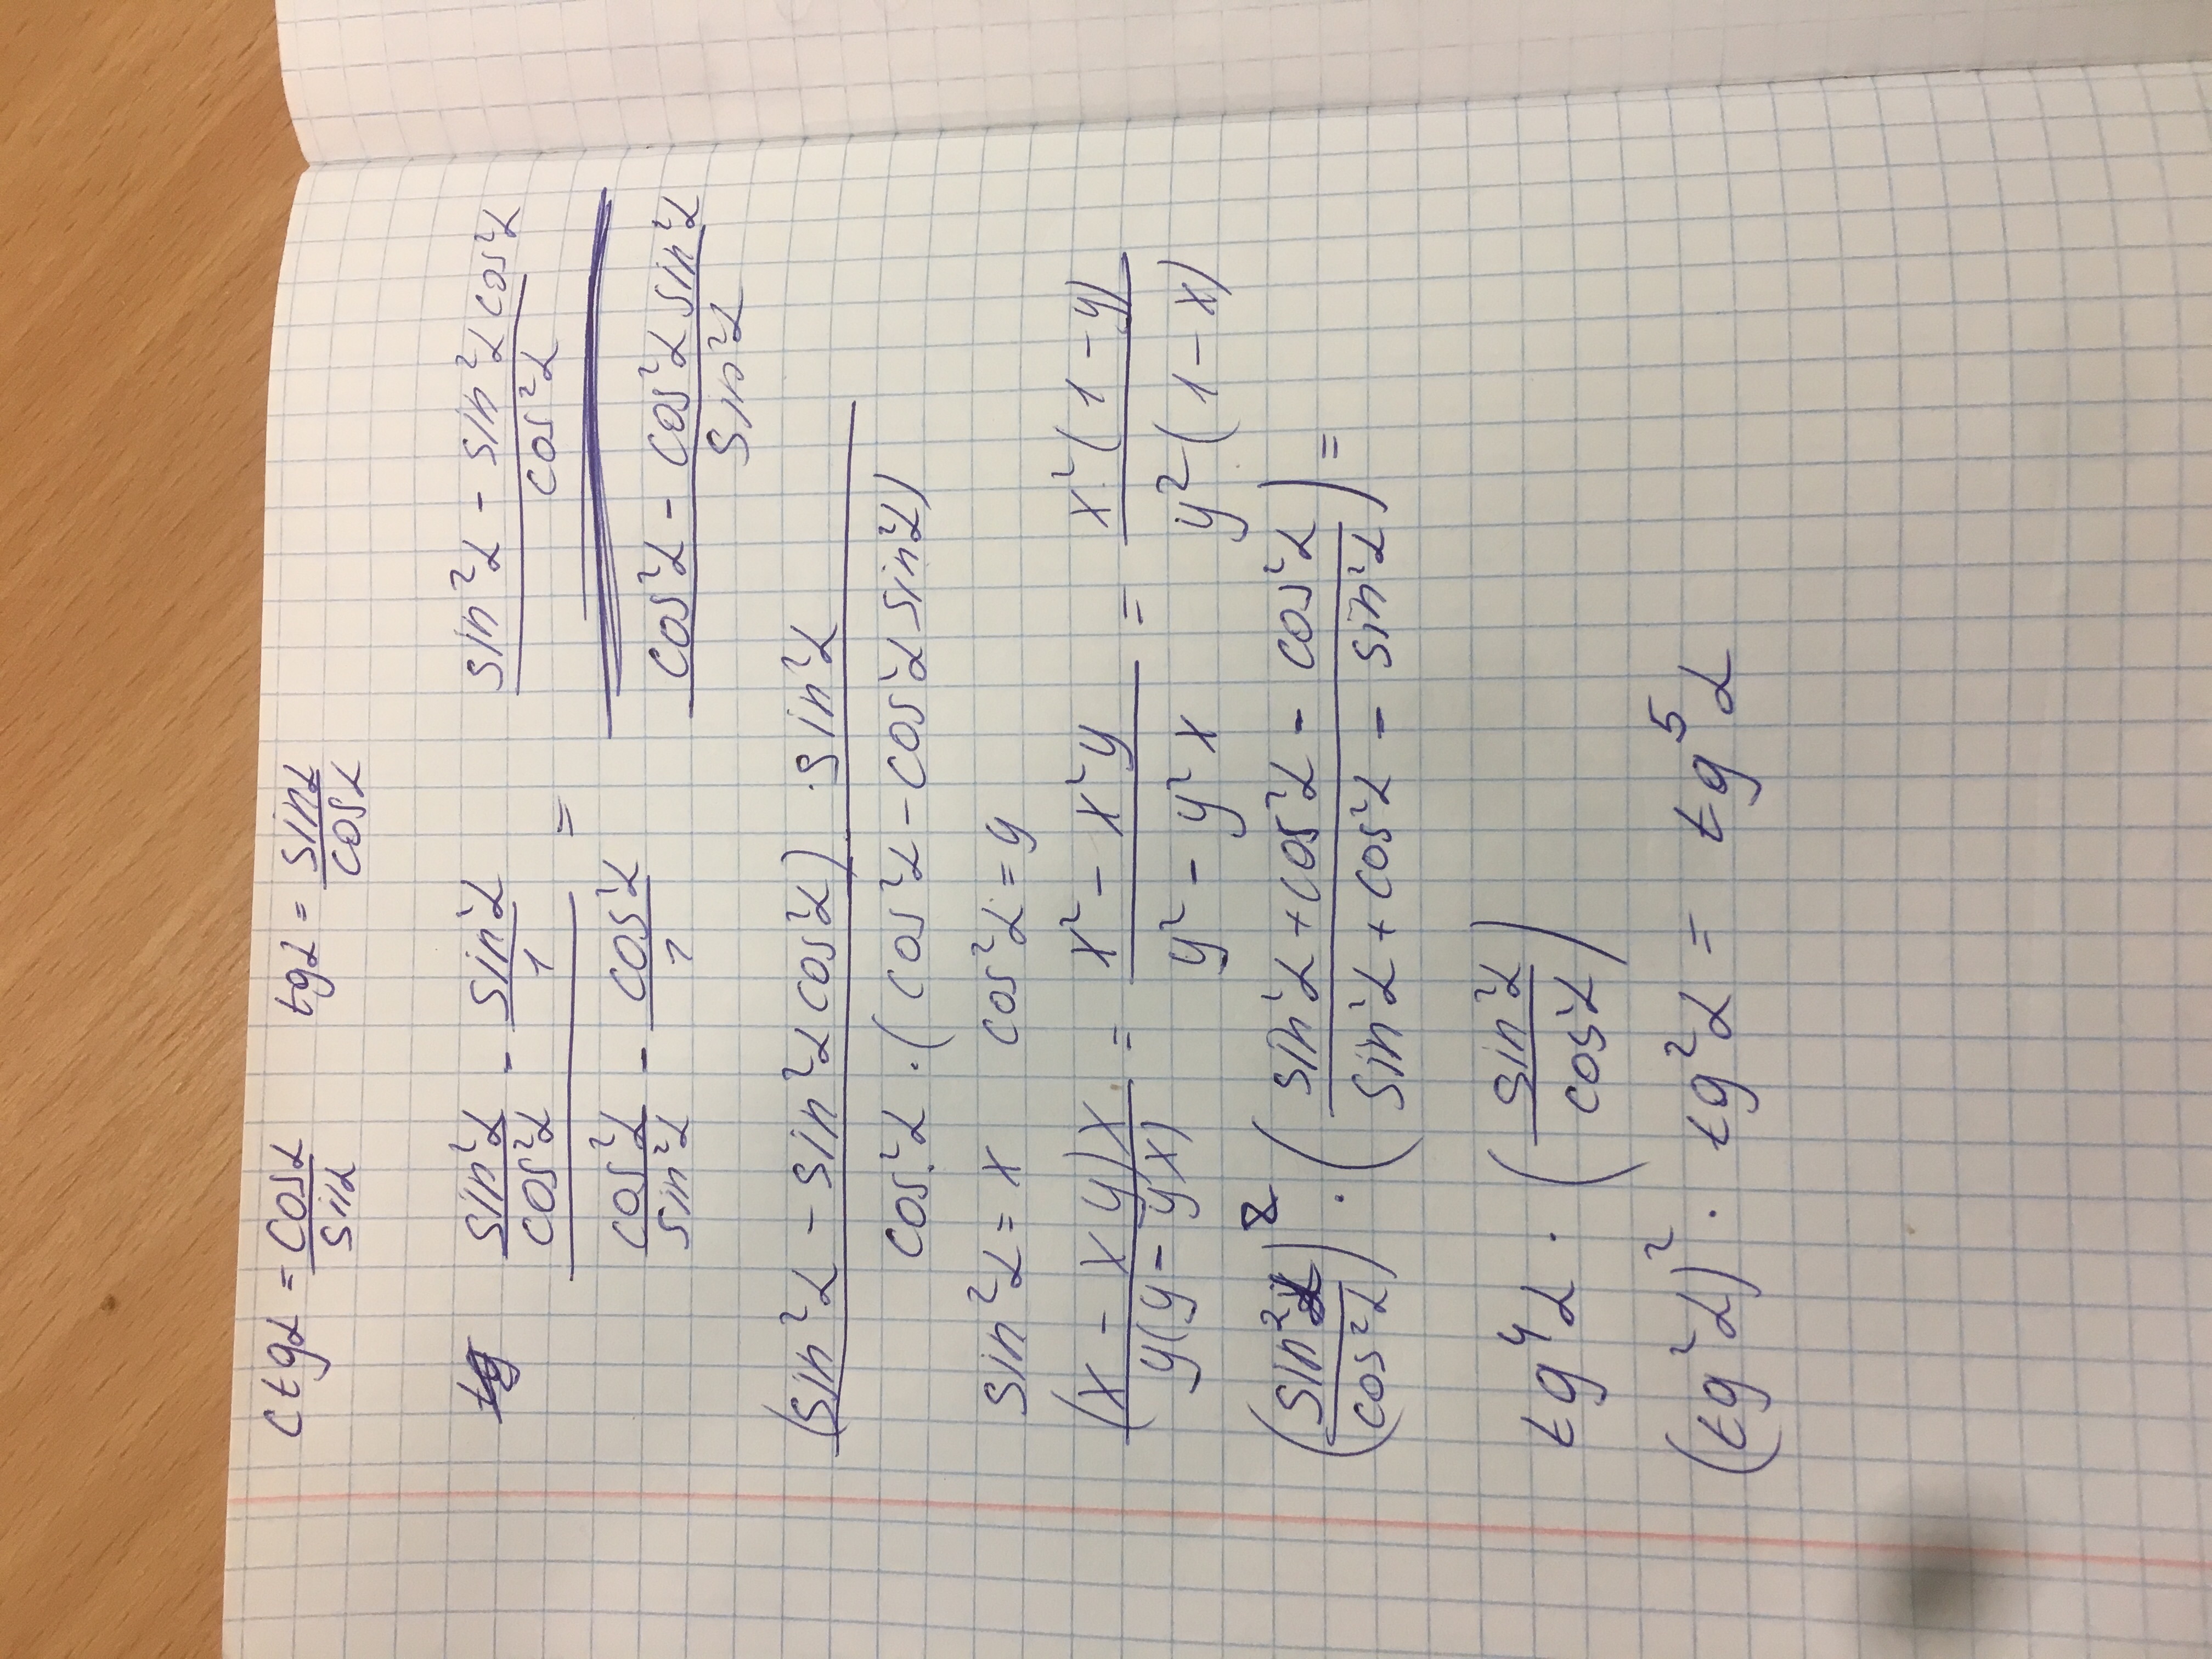 ctgα = cosα/sinα   tgα = sinα/cosα
(sin²α/cos²α - sin²α/1)/(cos²α/sin²α - cos²α/1) = ((sin²α - sin²α cos²α)/cos²α)/((cos²α - cos²α sin²α)/sin²α)
(sin²α - sin²α cos²α) · sin²α/cos²α · (cos²α - cos²α sin²α)
sin²α = x   cos²α = y
(x - xy)x/y(y - yx) = x² - x²y/y² - y²x = x²(1 - y)/y²(1 - x)
(sin²α/cos²α)² · (sin²α + cos²α - cos²α/sin²α + cos²α - sin²α) =
tg⁴α · (sin²α/cos²α)
(tg²α)² · tg²α = tg⁵α